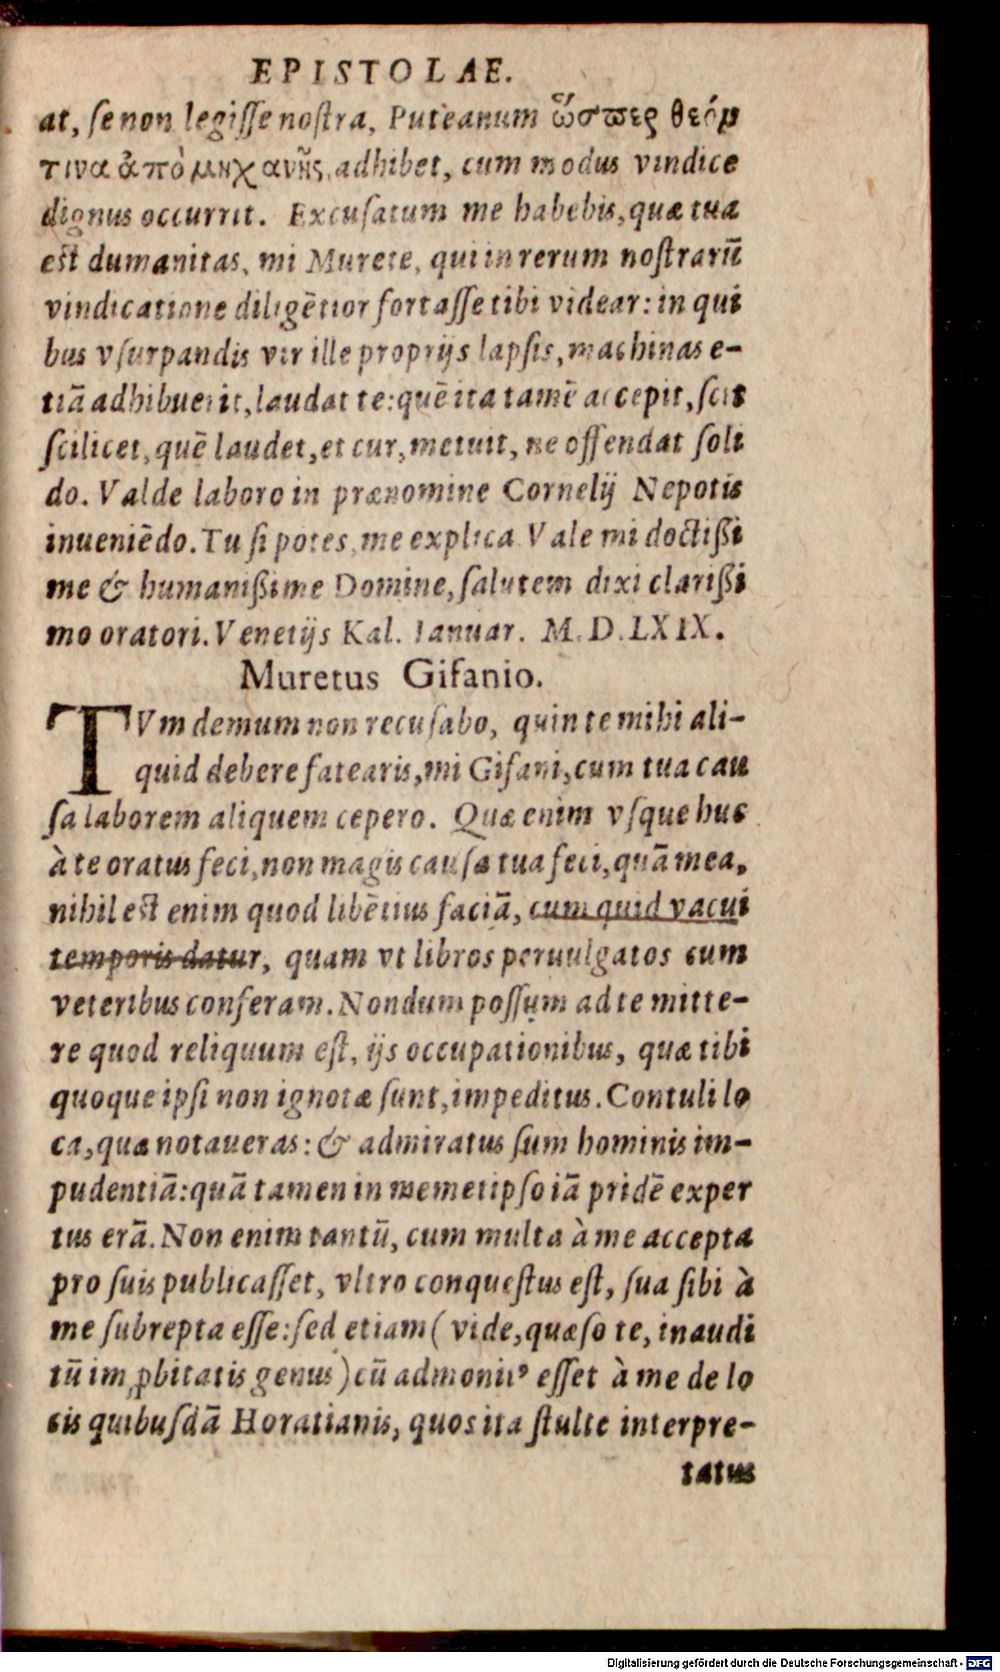 EPISTOLAE.
at, se non legisse nostra, Puteanum ὥσπερ θεόν
τινα ἀπὸ μηχανῆς, adhibet, cum modus vindice
dignus occurrit. Excusatum me habebis, quæ tua
est dumanitas, mi Murete, qui in rerum nostrarū
vindicatione diligētior fortasse tibi videar: in qui
bus vsurpandis vir ille proprijs lapsis, machinas e-
tiā adhibuerit, laudat te: quē ita tamē accepit, scit
scilicet, quē laudet, et cur, metuit, ne offendat soli
do. Valde laboro in prænomine Cornelij Nepotis
inueniēdo. Tu si potes, me explica Vale mi doctißi
me & humanißime Domine, salutem dixi clarißi
mo oratori. Venetijs Kal. Ianuar. M. D. LXIX.
Muretus Gifanio.
TVm demum non recusabo, quin te mihi ali-
quid debere fatearis, mi Gifani, cum tua cau
sa laborem aliquem cepero. Quæ enim vsque huc
à te oratus feci, non magis causa tua feci, quā mea,
nihil est enim quod libētius faciā, cum quid vacui
temporis datur, quam vt libros peruulgatos cum
veteribus conferam. Nondum possum ad te mitte-
re quod reliquum est, ijs occupationibus, quæ tibi
quoque ipsi non ignotæ sunt, impeditus. Contuli lo
ca, quæ notaueras: & admiratus sum hominis im-
pudentiā: quā tamen in memetipso iā pridē exper
tus erā. Non enim tantū, cum multa à me accepta
pro suis publicasset, vltro conquestus est, sua sibi à
me subrepta esse: sed etiam ( vide, quæso te, inaudi
tū im ꝓbitatis genus ) cū admonitꝰ esset à me de lo
cis quibusdā Horatianis, quos ita stulte interpre-
tatus
Digitalisierung gefördert durch die Deutsche Forschungsgemeinschaft - DFG